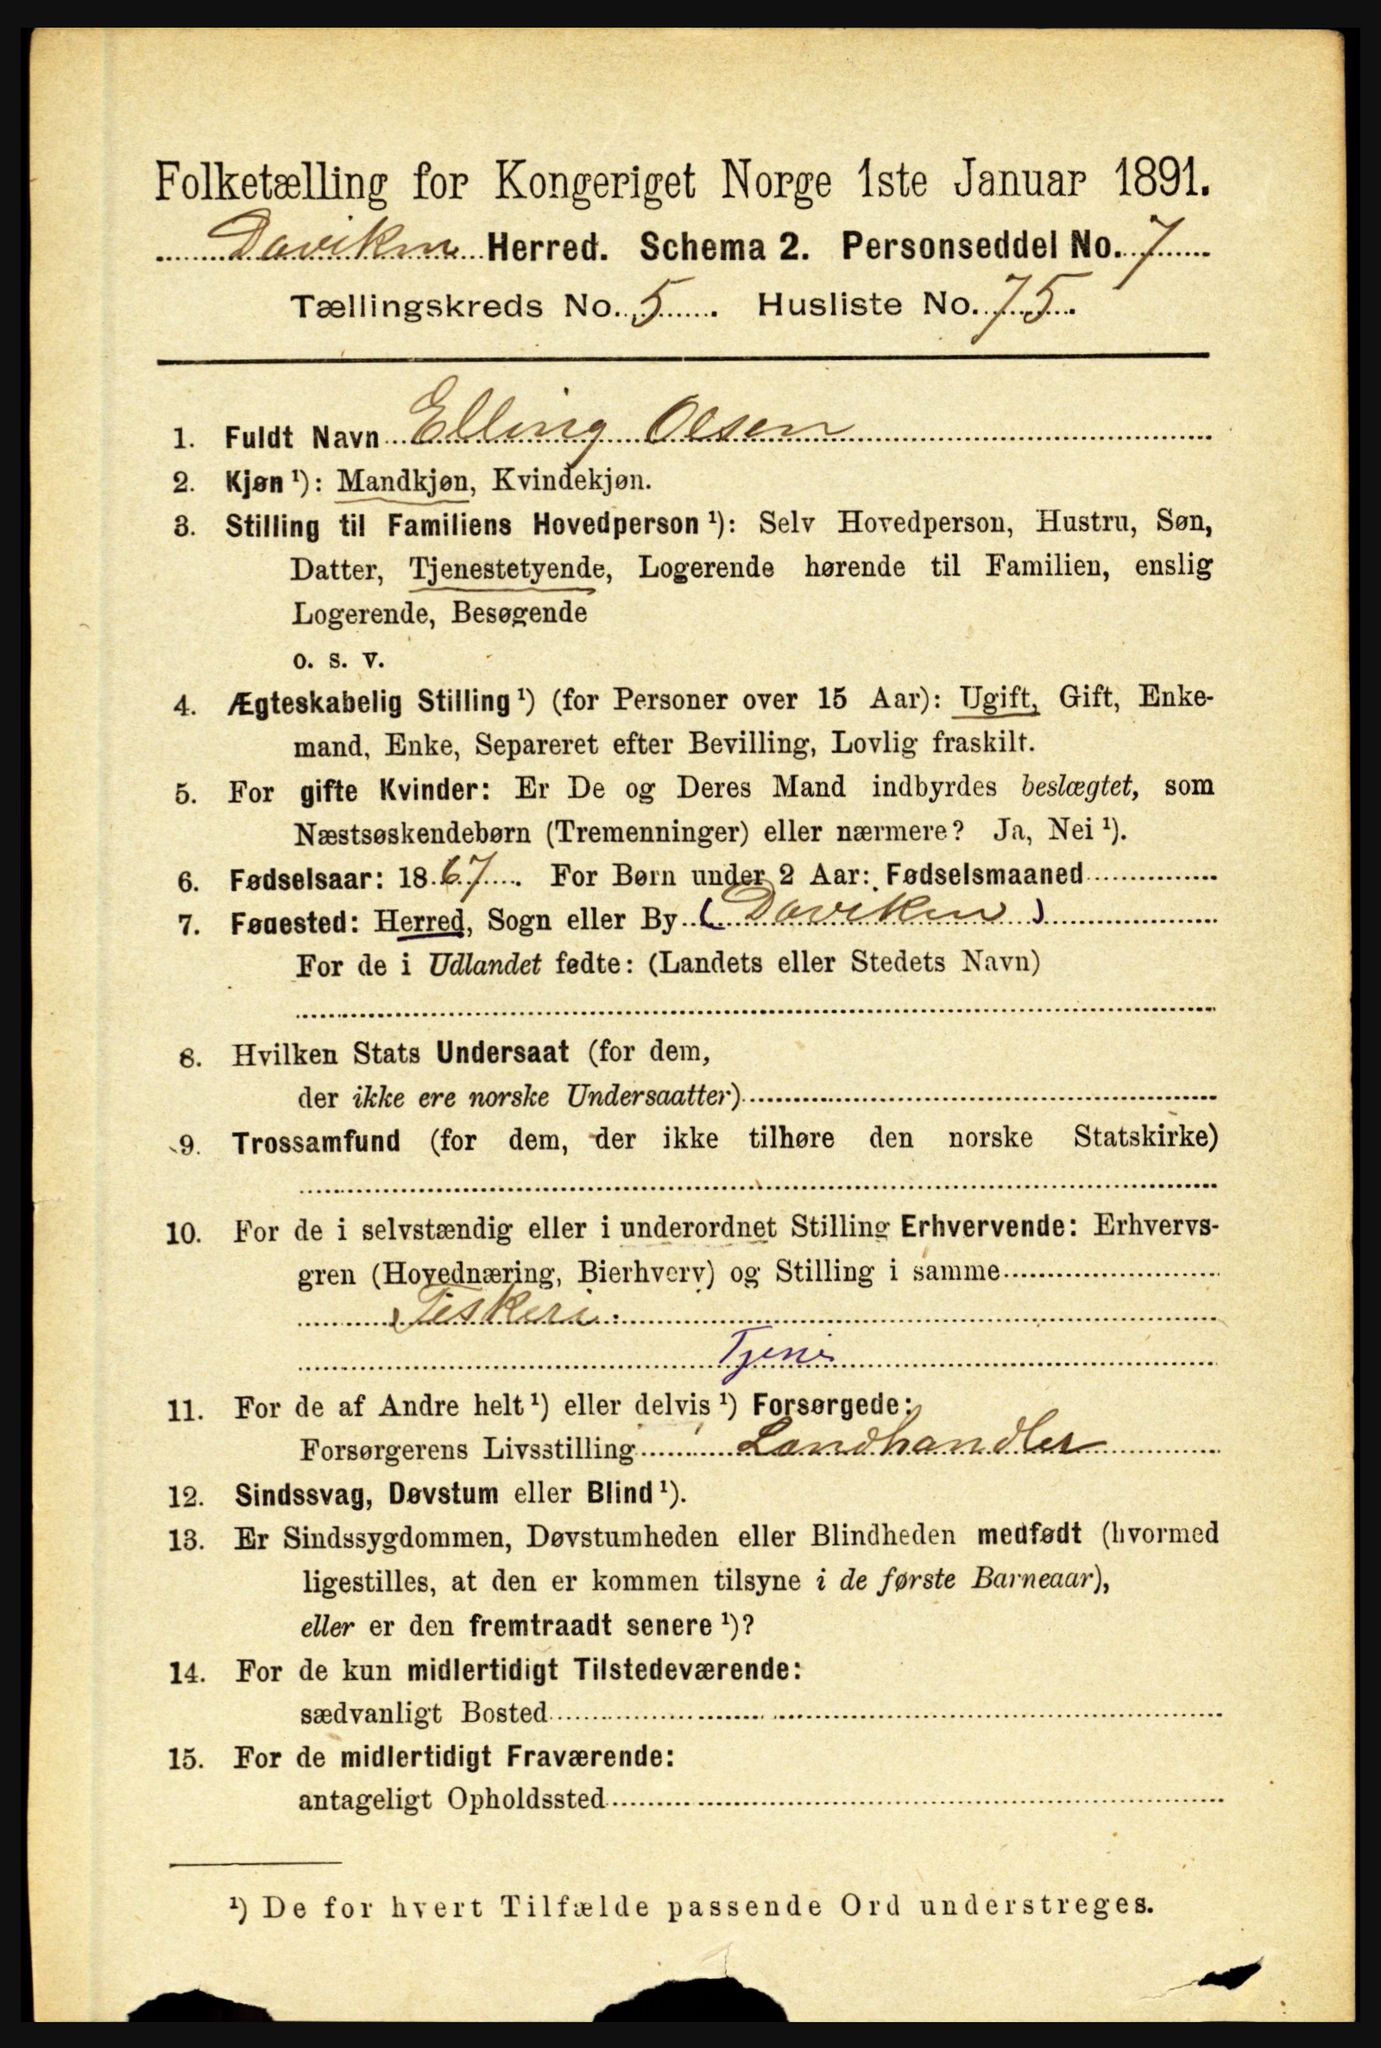 Folketælling for Kongeriget Norge 1ste Januar 1891.
Daviken Herred. Schema 2. Personseddel No. 7
Tællingskreds No. 5. Husliste No. 75.
1. Fuldt Navn Elling Olsen
2. Kjøn ¹): Mandkjøn, Kvindekjøn.
3. Stilling til Familiens Hovedperson ¹): Selv Hovedperson, Hustru, Søn,
Datter, Tjenestetyende, Logerende hørende til Familien, enslig
Logerende, Besøgende
o. s. v.
4. Ægteskabelig Stilling ¹) (for Personer over 15 Aar): Ugift, Gift, Enke-
mand, Enke, Separeret efter Bevilling, Lovlig fraskilt.
5. For gifte Kvinder: Er De og Deres Mand indbyrdes beslægtet, som
Næstsøskendebørn (Tremenninger) eller nærmere? Ja, Nei ¹).
6. Fødselsaar: 1867. For Børn under 2 Aar: Fødselsmaaned
7. Fødested: Herred, Sogn eller By (Daviken)
For de i Udlandet fødte: (Landets eller Stedets Navn)
8. Hvilken Stats Undersaat (for dem,
der ikke ere norske Undersaatter)
9. Trossamfund (for dem, der ikke tilhøre den norske Statskirke)
10. For de i selvstændig eller i underordnet Stilling Erhvervende: Erhvervs-
gren (Hovednæring, Bierhverv) og Stilling i samme
Fiskeri
Tjener
11. For de af Andre helt ¹) eller delvis ¹) Forsørgede:
Forsørgerens Livsstilling Landhandler
12. Sindssvag, Døvstum eller Blind ¹).
13. Er Sindssygdommen, Døvstumheden eller Blindheden medfødt (hvormed
ligestilles, at den er kommen tilsyne i de første Barneaar),
eller er den fremtraadt senere ¹)?
14. For de kun midlertidigt Tilstedeværende:
sædvanligt Bosted
15. For de midlertidigt Fraværende:
antageligt Opholdssted
¹) De for hvert Tilfælde passende Ord understreges.